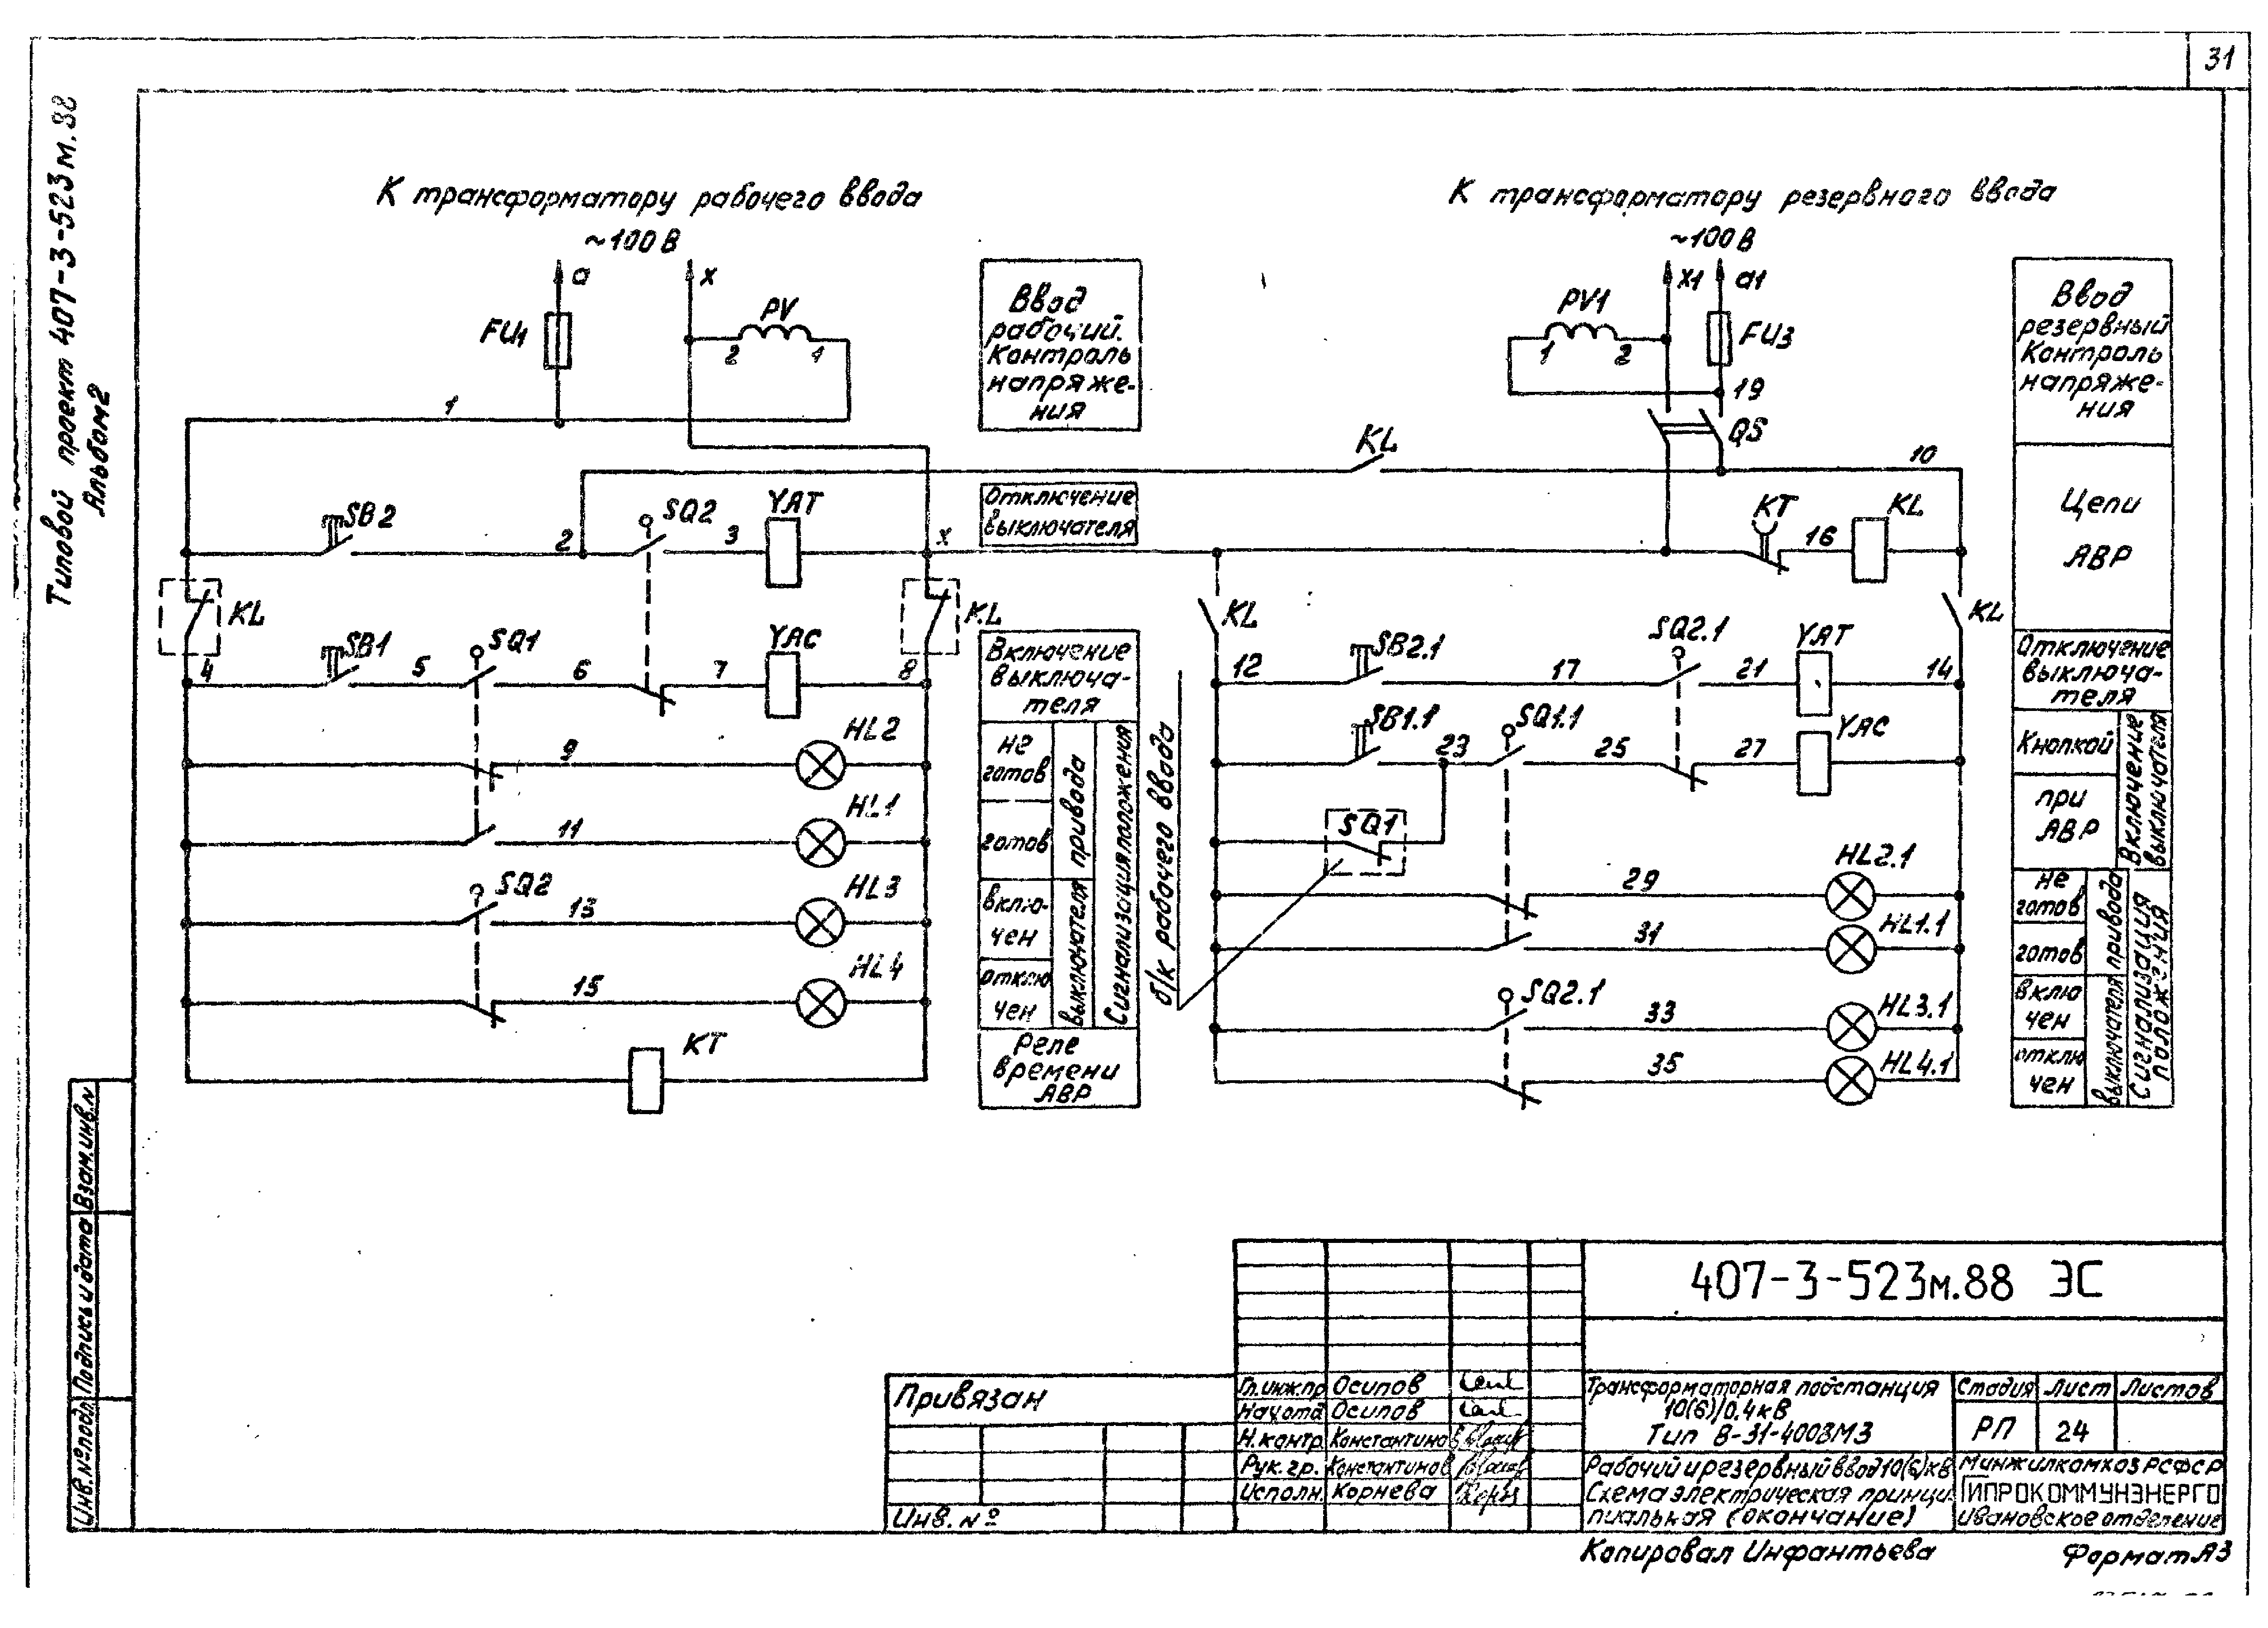 31
Типовой проект 407-3-523м.88
Альбом 2
К трансформатору рабочего ввода
~100В
а
х
FU1
PV
2
1
1
Ввод
рабочий.
Контроль
напряже-
ния
К трансформатору резервного ввода
~100В
х1
а1
PV1
1
2
FU3
19
QS
Ввод
резервный
Контроль
напряже-
ния
KL
10
SB2
2
SQ2
3
YAT
х
Отключение
выключателя
KT
16
KL
Цепи
АВР
KL
KL
KL
KL
4
SB1
5
SQ1
6
7
YAC
8
Включение
выключа-
теля
12
SB2.1
17
SQ2.1
21
YAT
14
Отключение
выключа-
теля
9
HL2
не
готов
11
HL1
готов
привода
SQ2
13
HL3
вклю-
чен
15
HL4
отклю
чен
выключателя
Сигнализация положения
KT
Реле
времени
АВР
б/к рабочего ввода
SB1.1
23
SQ1.1
25
27
YAC
Кнопкой
SQ1
при
АВР
Включение
выключателя
29
HL2.1
не
готов
31
HL1.1
готов
привода
SQ2.1
33
HL3.1
вклю
чен
35
HL4.1
отклю
чен
выключателя
Сигнализация
положения
Взам.инв.№
Подпись и дата
Инв.№подл.
407-3-523м.88 ЭС
Привязан
Инв.№
Гл.инж.пр Осипов
Нач.отд Осипов
Н.контр. Константинов
Рук.гр. Константинов
Исполн. Корнева
Трансформаторная подстанция
10(6)/0.4кВ
Тип В-31-400ВМ3
Стадия Лист Листов
РП 24
Рабочий и резервный ввод 10(6)кВ
Схема электрическая принци-
пиальная (окончание)
Минжилкомхоз РСФСР
ГИПРОКОММУНЭНЕРГО
Ивановское отделение
Копировал Инфантьева
Формат А3